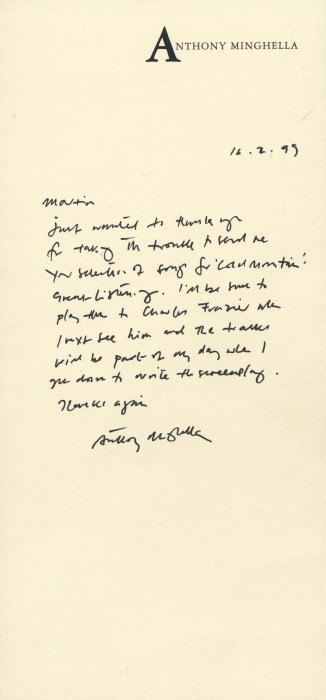 ANTHONY MINGHELLA
16.2.99
Martin
Just wanted to thank you
for taking the trouble to send me
your selection of songs for 'Cold Mountain'.
Great listening. I'll be sure to
play them to Charles Frazier when
I next see him and the tracks
will be part of my day when I
get down to write the screenplay.
Thanks again
Anthony Minghella